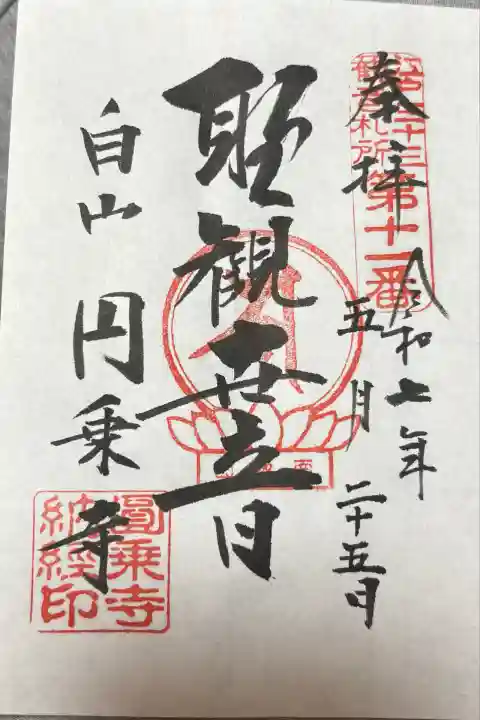 奉拝
江戸三十三
観音札所
第十一番
令和七年
五月二十五日
聖観世音
白山円乗寺
圓乗寺
納経印